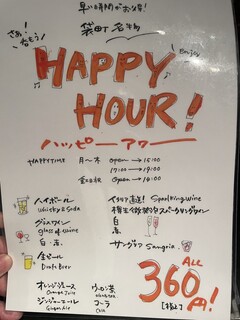 早い時間がお得!
袋町名物
さあ、
呑もう!
Enjoy
HAPPY
HOUR!
ハッピーアワー
HAPPYTIME 月〜木 open → 18:00
17:00 → 19:00
金土日 Open → 14:00
ハイボール
Whisky & Soda
グラスワイン
glass of wine
白・赤
生ビール
Draft Beer
イタリア直送! Sparkling wine
樽生スパークリングワイン
サングリア Sangria
白・赤
オレンジジュース
Orange Juice
ジンジャーエール
Ginger Ale
ウーロン茶
コーラ
Cola
ALL
360円!
[税込]